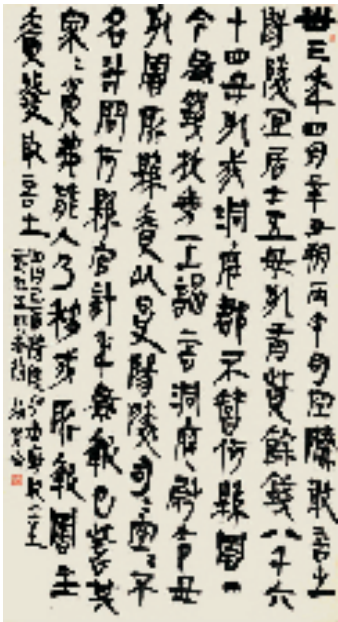 卅三年四月辛丑朔丙午司空騰敢言之
陽陵宜居士五毋死有貲餘錢八千六
十四毋死戍洞庭郡不智何縣署
今為錢校券一上謁言洞庭尉令毋
死署所縣責以受陽陵司〻空〻不
名計問何縣官計年為報已訾其
家〻貧弗能入乃移戍所報署主
責發敢言之